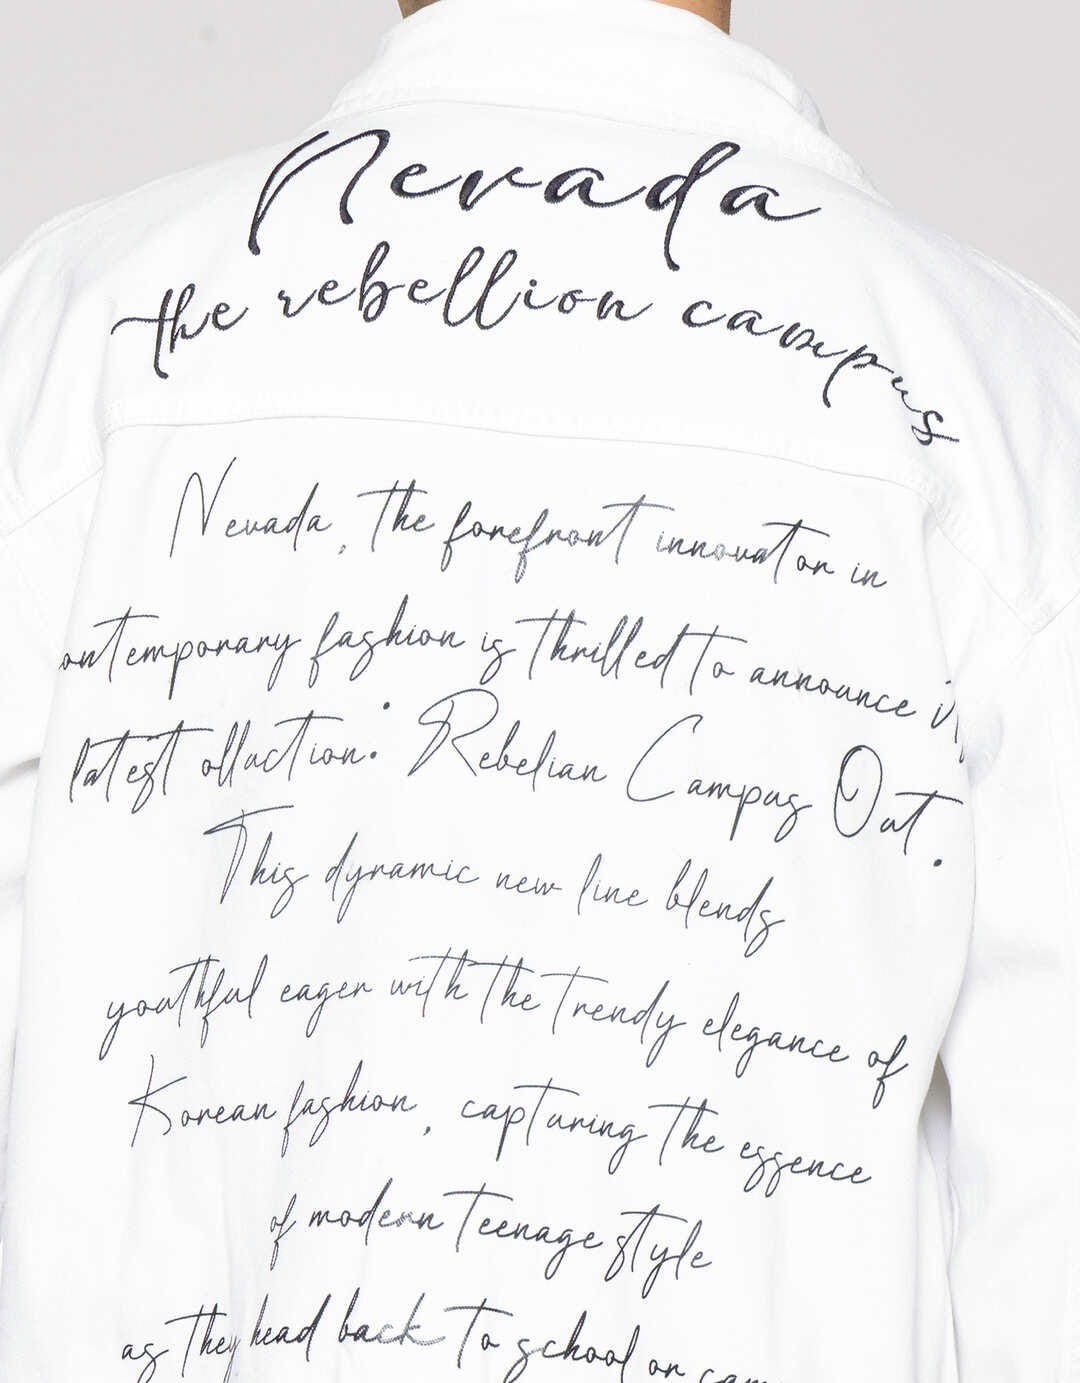 Nevada
the rebellion campus
Nevada, the forefront innovator in
ontemporary fashion is thrilled to announce it
latest olluction: Rebelian Campus Out.
This dynamic new line blends
youthful eager with the trendy elegance of
Korean fashion, capturing the essence
of modern teenage style
as they head back to school or cam